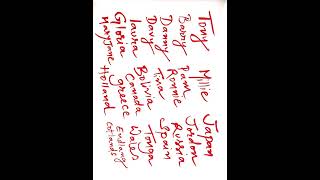 Tony Millie Japan
Barry Pam Jordon
Danny Ronnie Russia
Davy Tina Spain
laura Bolivia Tonga
Gloria Canada Wales
Maryjane greece Endlang
Holland Cotlands